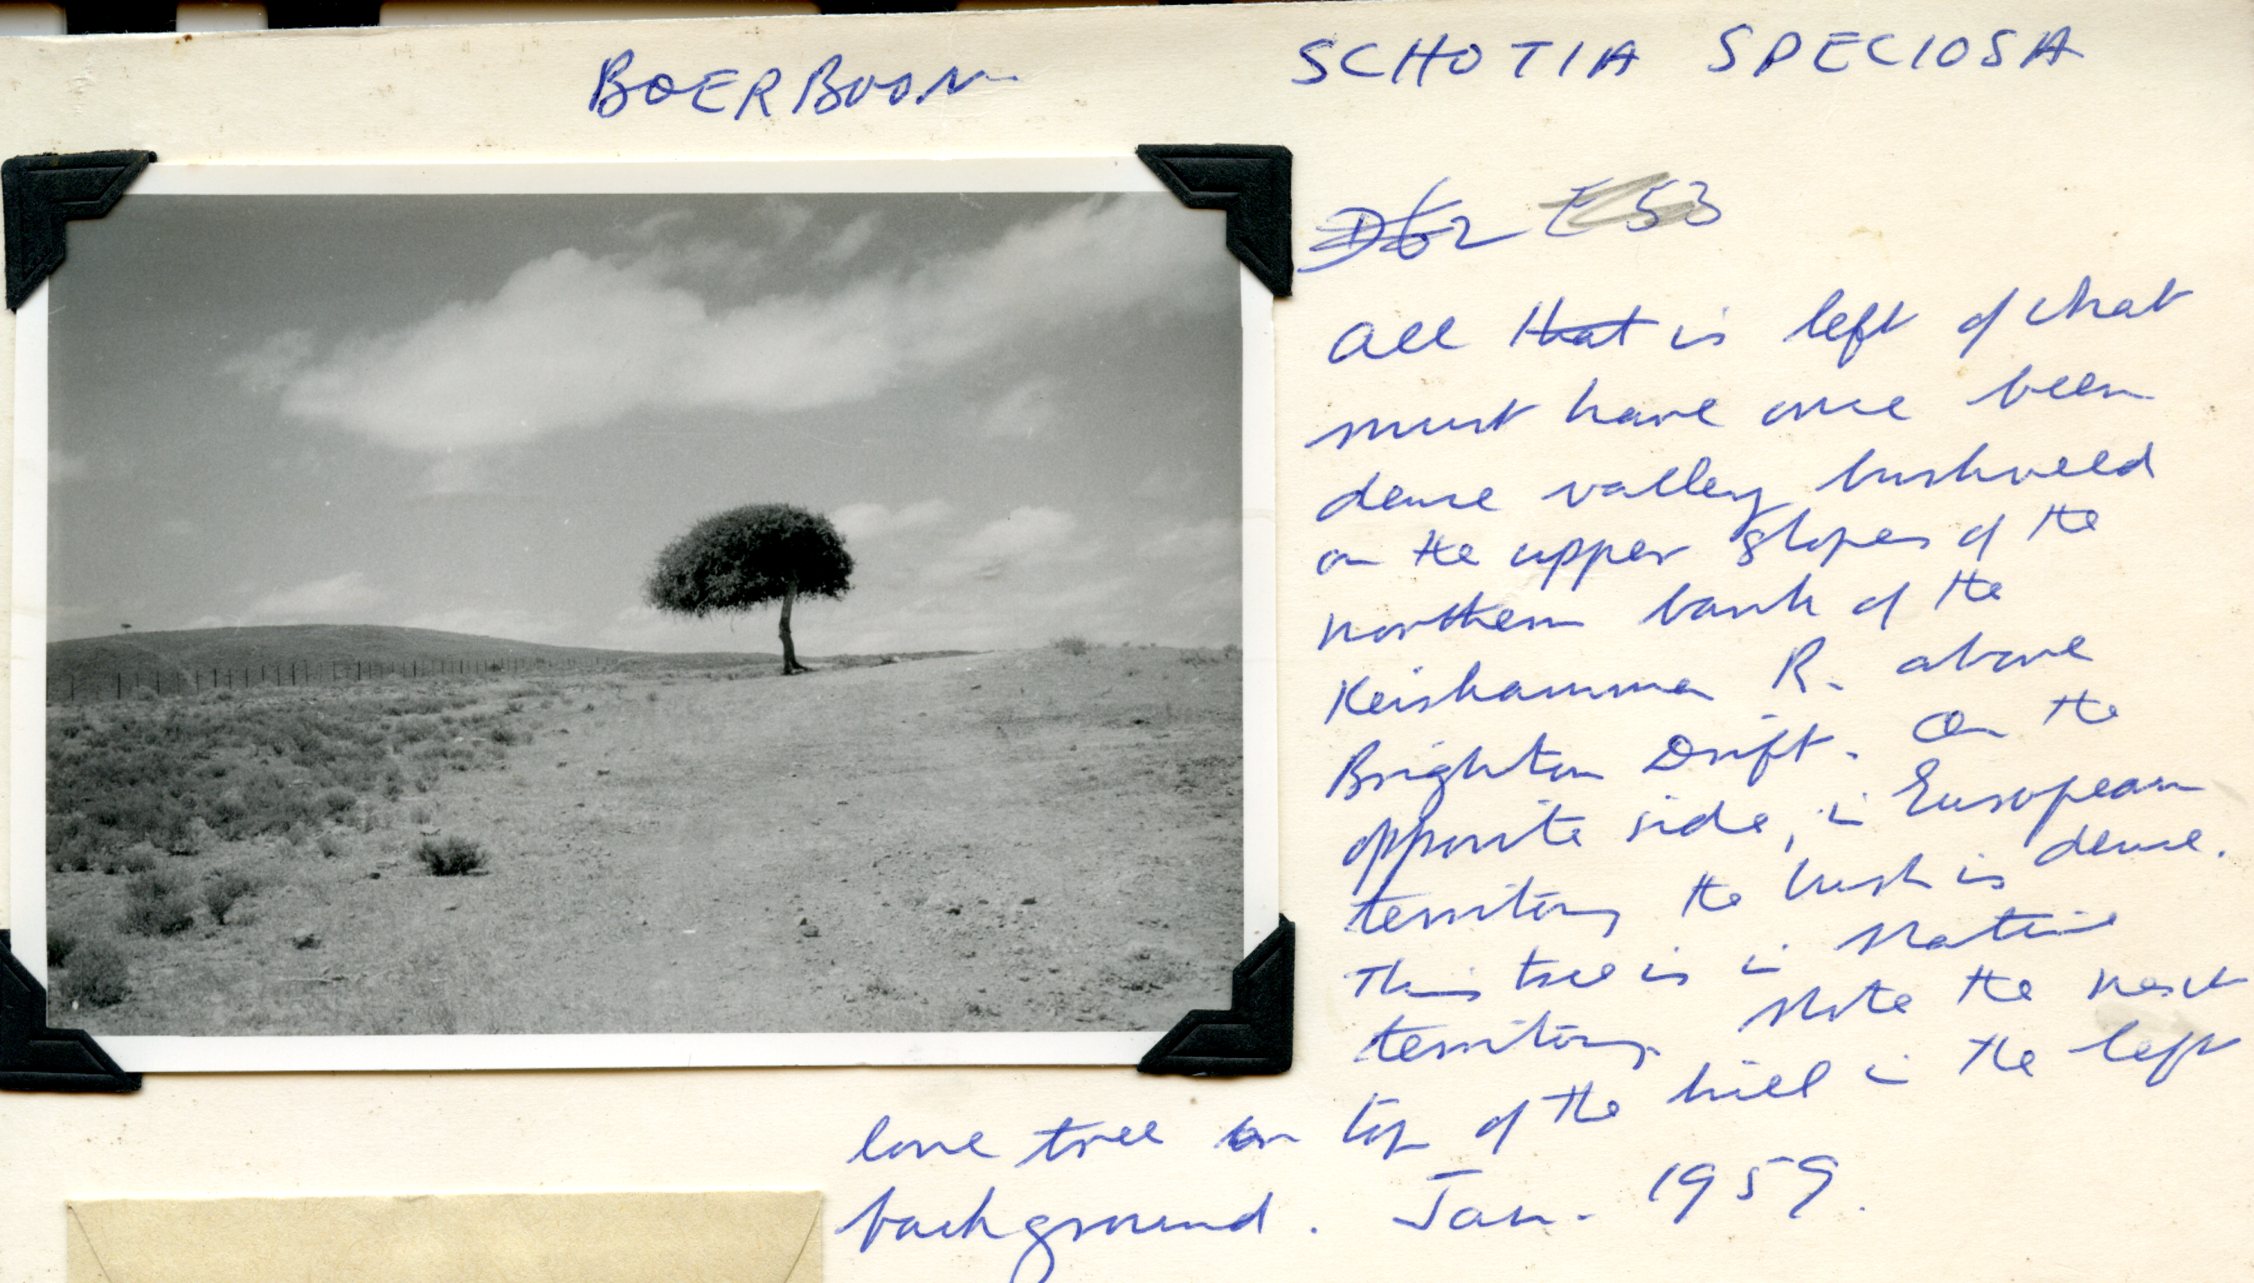 BOERBOON SCHOTIA SPECIOSA
D62 E53
All that is left of what
must have once been
dense valley bushveld
on the upper slopes of the
northern bank of the
Keiskamma R. above
Brighton Drift. On the
opposite side, in European
territory the bush is dense.
This tree is in Native
territory. Note the next
lone tree on top of the hill in the left
background. Jan. 1959.